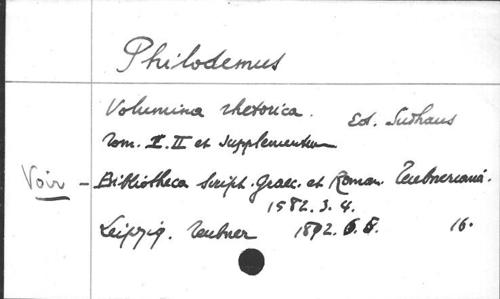 Philodemus
Volumina rhetorica. Ed. Sudhaus
Tom. I. II et Supplementum
Voir - Bibliotheca Script. Graec. et Roman. Teubneriana.
1582. 3. 4.
Leipzig. Teubner 1892. 6. 16.